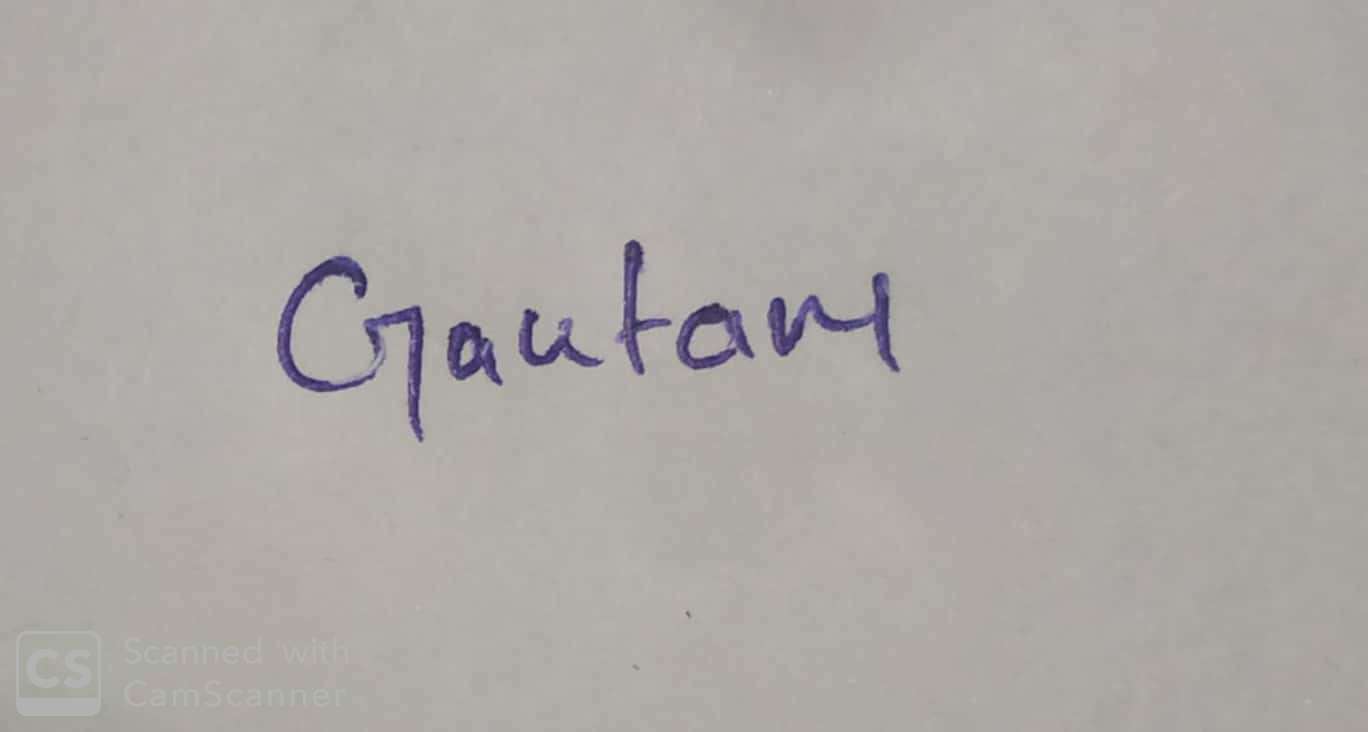 Gautam
CS Scanned with
CamScanner